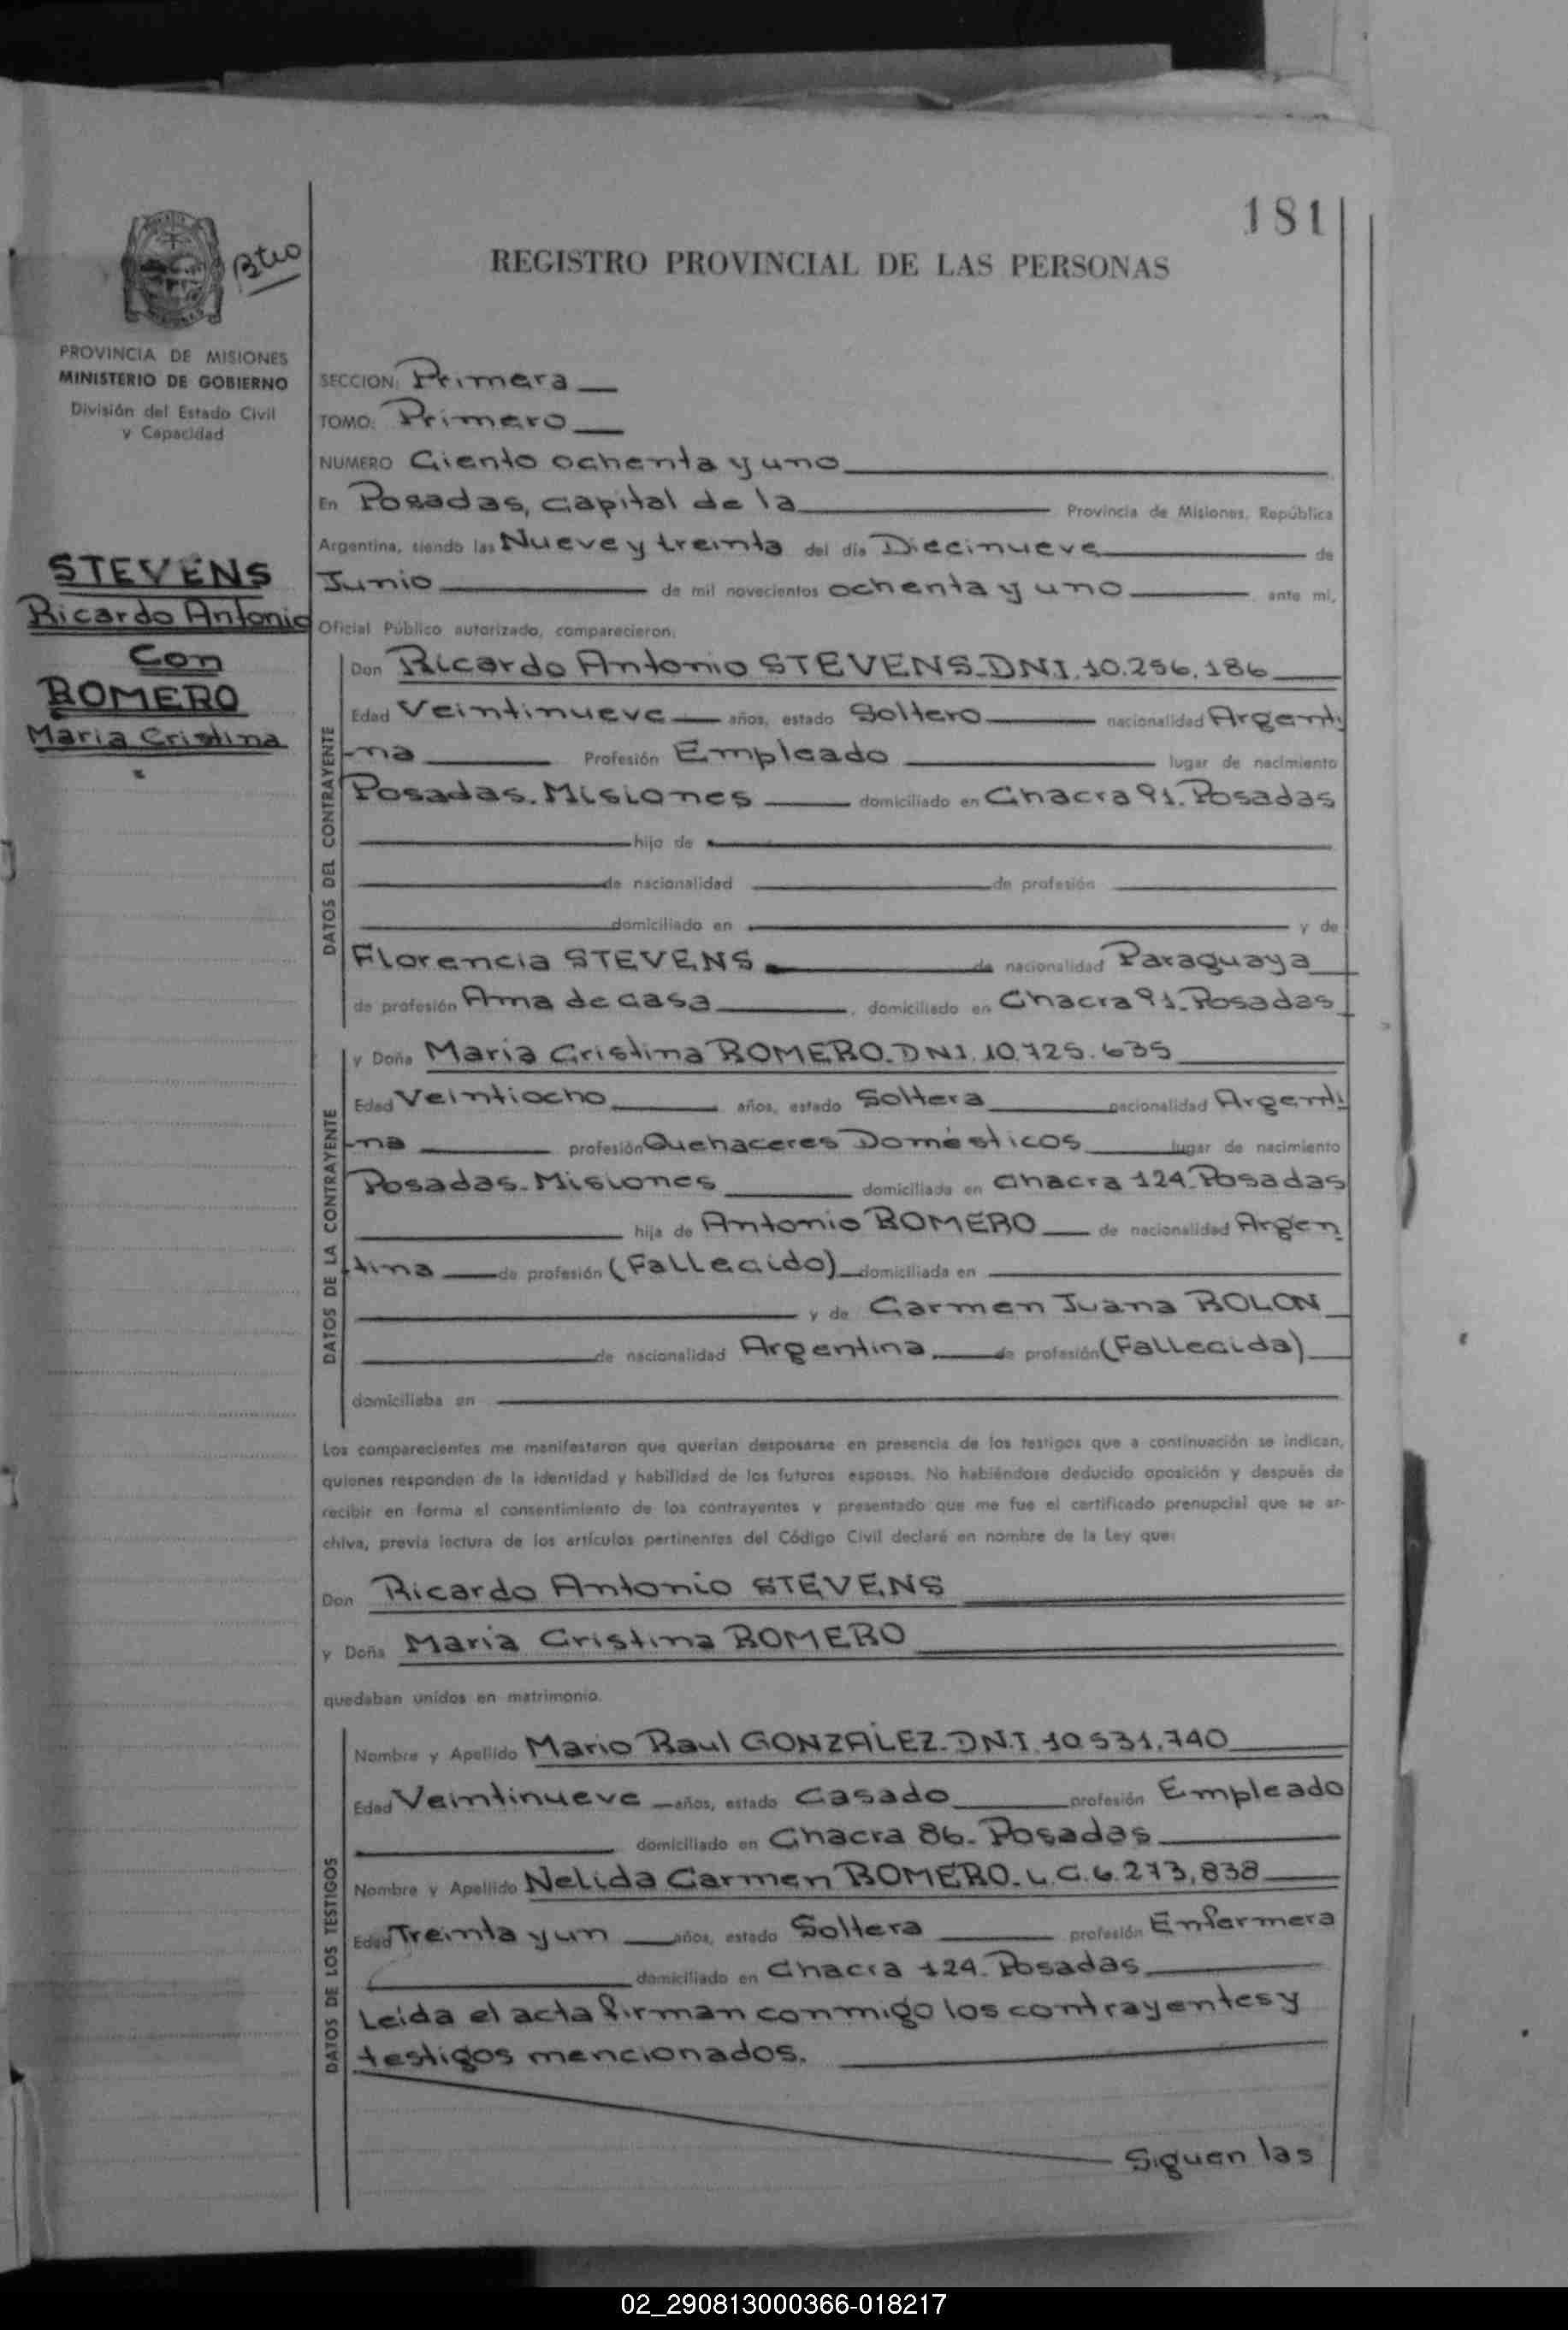 181
REGISTRO PROVINCIAL DE LAS PERSONAS
PROVINCIA DE MISIONES
MINISTERIO DE GOBIERNO
División del Estado Civil
y Capacidad
STEVENS
Ricardo Antonio
Con
ROMERO
Maria Cristina
SECCION: Primera
TOMO: Primero
NUMERO Ciento ochenta y uno
En Posadas, capital de la Provincia de Misiones, República
Argentina, siendo las Nueve y treinta del día Diecinueve de
Junio de mil novecientos ochenta y uno, ante mí,
Oficial Público autorizado, comparecieron:
DATOS DEL CONTRAYENTE
Don Ricardo Antonio STEVENS-DNI.10.256.186
Edad Veintinueve años, estado Soltero nacionalidad Argenti
-na Profesión Empleado lugar de nacimiento
Posadas.Misiones domiciliado en Chacra 91.Posadas
hijo de
de nacionalidad de profesión
domiciliado en y de
Florencia STEVENS de nacionalidad Paraguaya
de profesión Ama de casa, domiciliado en Chacra 91-Posadas
DATOS DE LA CONTRAYENTE
y Doña Maria Cristina ROMERO-DNI.10.725.635
Edad Veintiocho años, estado Soltera nacionalidad Argenti
-na profesión Quehaceres Domésticos lugar de nacimiento
Posadas-Misiones domiciliada en Chacra 124-Posadas
hija de Antonio ROMERO de nacionalidad Argen
tina de profesión (Fallecido) domiciliada en
y de Carmen Juana BOLON
de nacionalidad Argentina de profesión (Fallecida)
domiciliaba en
Los comparecientes me manifestaron que querían desposarse en presencia de los testigos que a continuación se indican,
quienes responden de la identidad y habilidad de los futuros esposos. No habiéndose deducido oposición y después de
recibir en forma el consentimiento de los contrayentes y presentado que me fue el certificado prenupcial que se ar-
chiva, previa lectura de los artículos pertinentes del Código Civil declaré en nombre de la Ley que:
Don Ricardo Antonio STEVENS
y Doña Maria Cristina ROMERO
quedaban unidos en matrimonio.
DATOS DE LOS TESTIGOS
Nombre y Apellido Mario Raul GONZALEZ-DNI.10.531.740
Edad Veintinueve años, estado Casado profesión Empleado
domiciliado en Chacra 86-Posadas
Nombre y Apellido Nelida Carmen ROMERO-L.C.6.273,838
Edad Treinta y un años, estado Soltera profesión Enfermera
domiciliado en Chacra 124-Posadas
Leida el acta firman conmigo los contrayentes y
testigos mencionados.
Siguen las
02_290813000366-018217